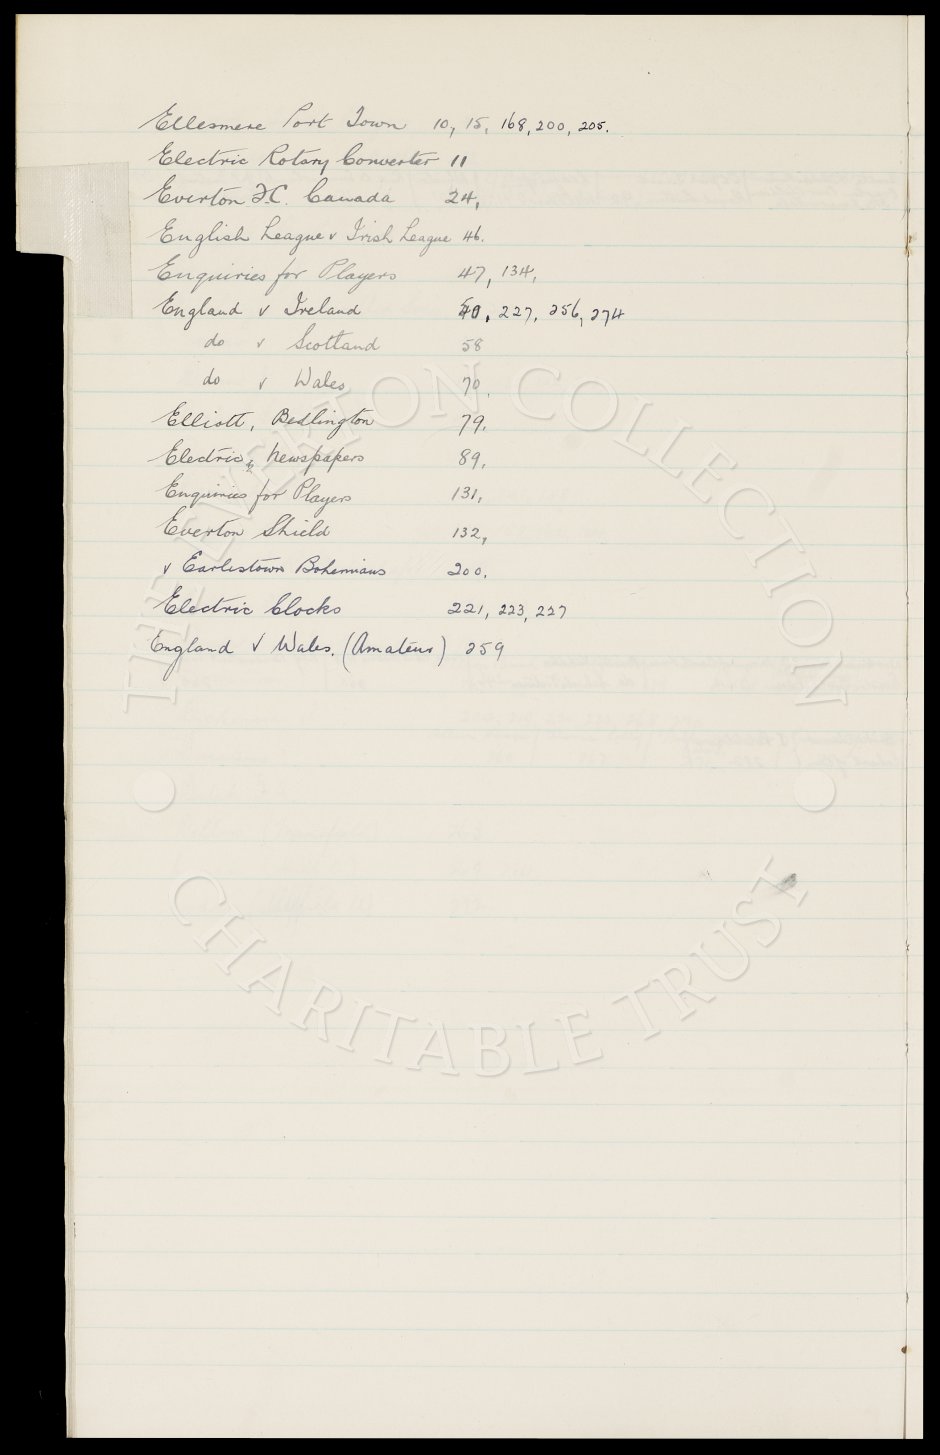 Ellesmere Port Town 10, 15, 168, 200, 205.
Electric Rotary Converter 11
Everton F.C. Canada 24,
English League v Irish League 46.
Enquiries for Players 47, 134,
England v Ireland 40, 227, 256, 274
do v Scotland 58
do v Wales 70,
Elliott, Bedlington 79.
Electric, Newspapers 89,
Enquiries for Players 131,
Everton Shield 132,
v Earlestown Bohemians 200.
Electric Clocks 221, 223, 227
England v Wales. (Amateur) 259
THE EVERTON COLLECTION
CHARITABLE TRUST